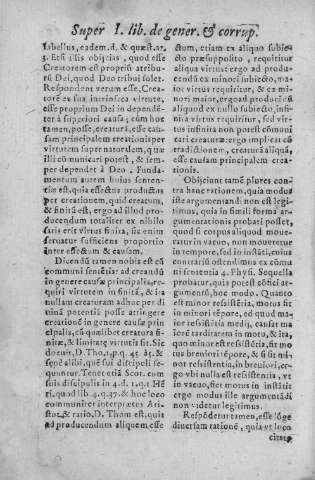 Super I. lib. de gener. & corrup.
labellus, eadem. d. & quæst. ar.
3. Etsi illis obijtias, quod esse
Creatorem est proprii attribu-
Dei, quod Deo tribui solet.
Respondent verum esse, Crea-
tore ex sua intrinseca virtute,
esse proprium Dei in dependé-
ter á superiori causa; cùm hoc
tamen, posse, creaturā, esse cau-
sam principalem creationis per
virtutem supernaturalem, quæ
illi cōmunicari potest, & sem-
per dependet à Deo. Funda-
mentum autem huius senten-
tiæ est, quia effectus productus
per creationem, quid creatum,
& finitū est, ergo ad illud pro-
ducendum totaliter ex nihilo
satis erit virtus finita, sic enim
seruatur sufficiens proportio
inter effectum & causam.
Dicendū tamen nobis est cū
communi senētia: ad creandū
in genere causæ principalis, re-
quiri virtutem infinitā, & ita
nullam creaturam adhuc per di-
uinā potentiā posse attingere
creationē in genere causæ prin-
cipalis, cū quælibet creatura fi-
nitæ, & limitatæ virtutis sit. Sic
docuit, D. Tho. 1. p. q. 45. ar. 5. &
sæpè alibi, què sui discipuli se-
quuntur. Tenet etiā Scot. cum
suis discipulis in 4. d. 1. q. 1. Hē
ri. quod lib. 4. q. 37. & hoc loco
communiter interpretes Ari-
stot. & ratio, D. Thom est, quia
ad producendum aliquem esse
ctum, etiam ex aliquo subie-
cto præsupposito, requiritur
aliqua virtus: ergo ad produ-
cendū ex minori subiecto, ma-
ior virtus requiritur, & ex mi-
nori maior, ergo ad producēdū
aliquid ex nullo subiecto, infi-
nita virtus requiritur, sed vir-
tus infinita non potest cōmuni
cari creaturæ: ergo implicat cō
tradictionem, creaturā aliquā,
esse causam principalem crea-
tionis.
Obijciunt tamē plures con-
tra hanc rationem, quia modus
iste argumentandi non est legi-
timus, quia in simili forma ar-
gumentationis probari posset,
quod si corpus aliquod moue-
ratur in vacuo, non moueretur
in tempore, sed in instāti, cuius
contrariū ostendimus ex cōmu
ni sententia 4. Phys. Sequella
probatur, quia potest cōfici ar-
gumentū, hoc modo. Quanto
est minor resistētia, motus fit
in minori tēpore, eò quod ma-
ior resistētia medij, causat ma
iorē tarditatem in motu, & ita,
quo minor est resistētia, fit mo
tus breuiori tēpore, & si fit mi-
nor resistētia, in breuiori, er-
go vbi nulla est resistentia, vt
in vacuo, fiet motus in instāti:
ergo modus ille argumentādi
non videtur legitimus.
Respōdetur tamen, esse lōge
diuersam rationē, quia vt loco
citato